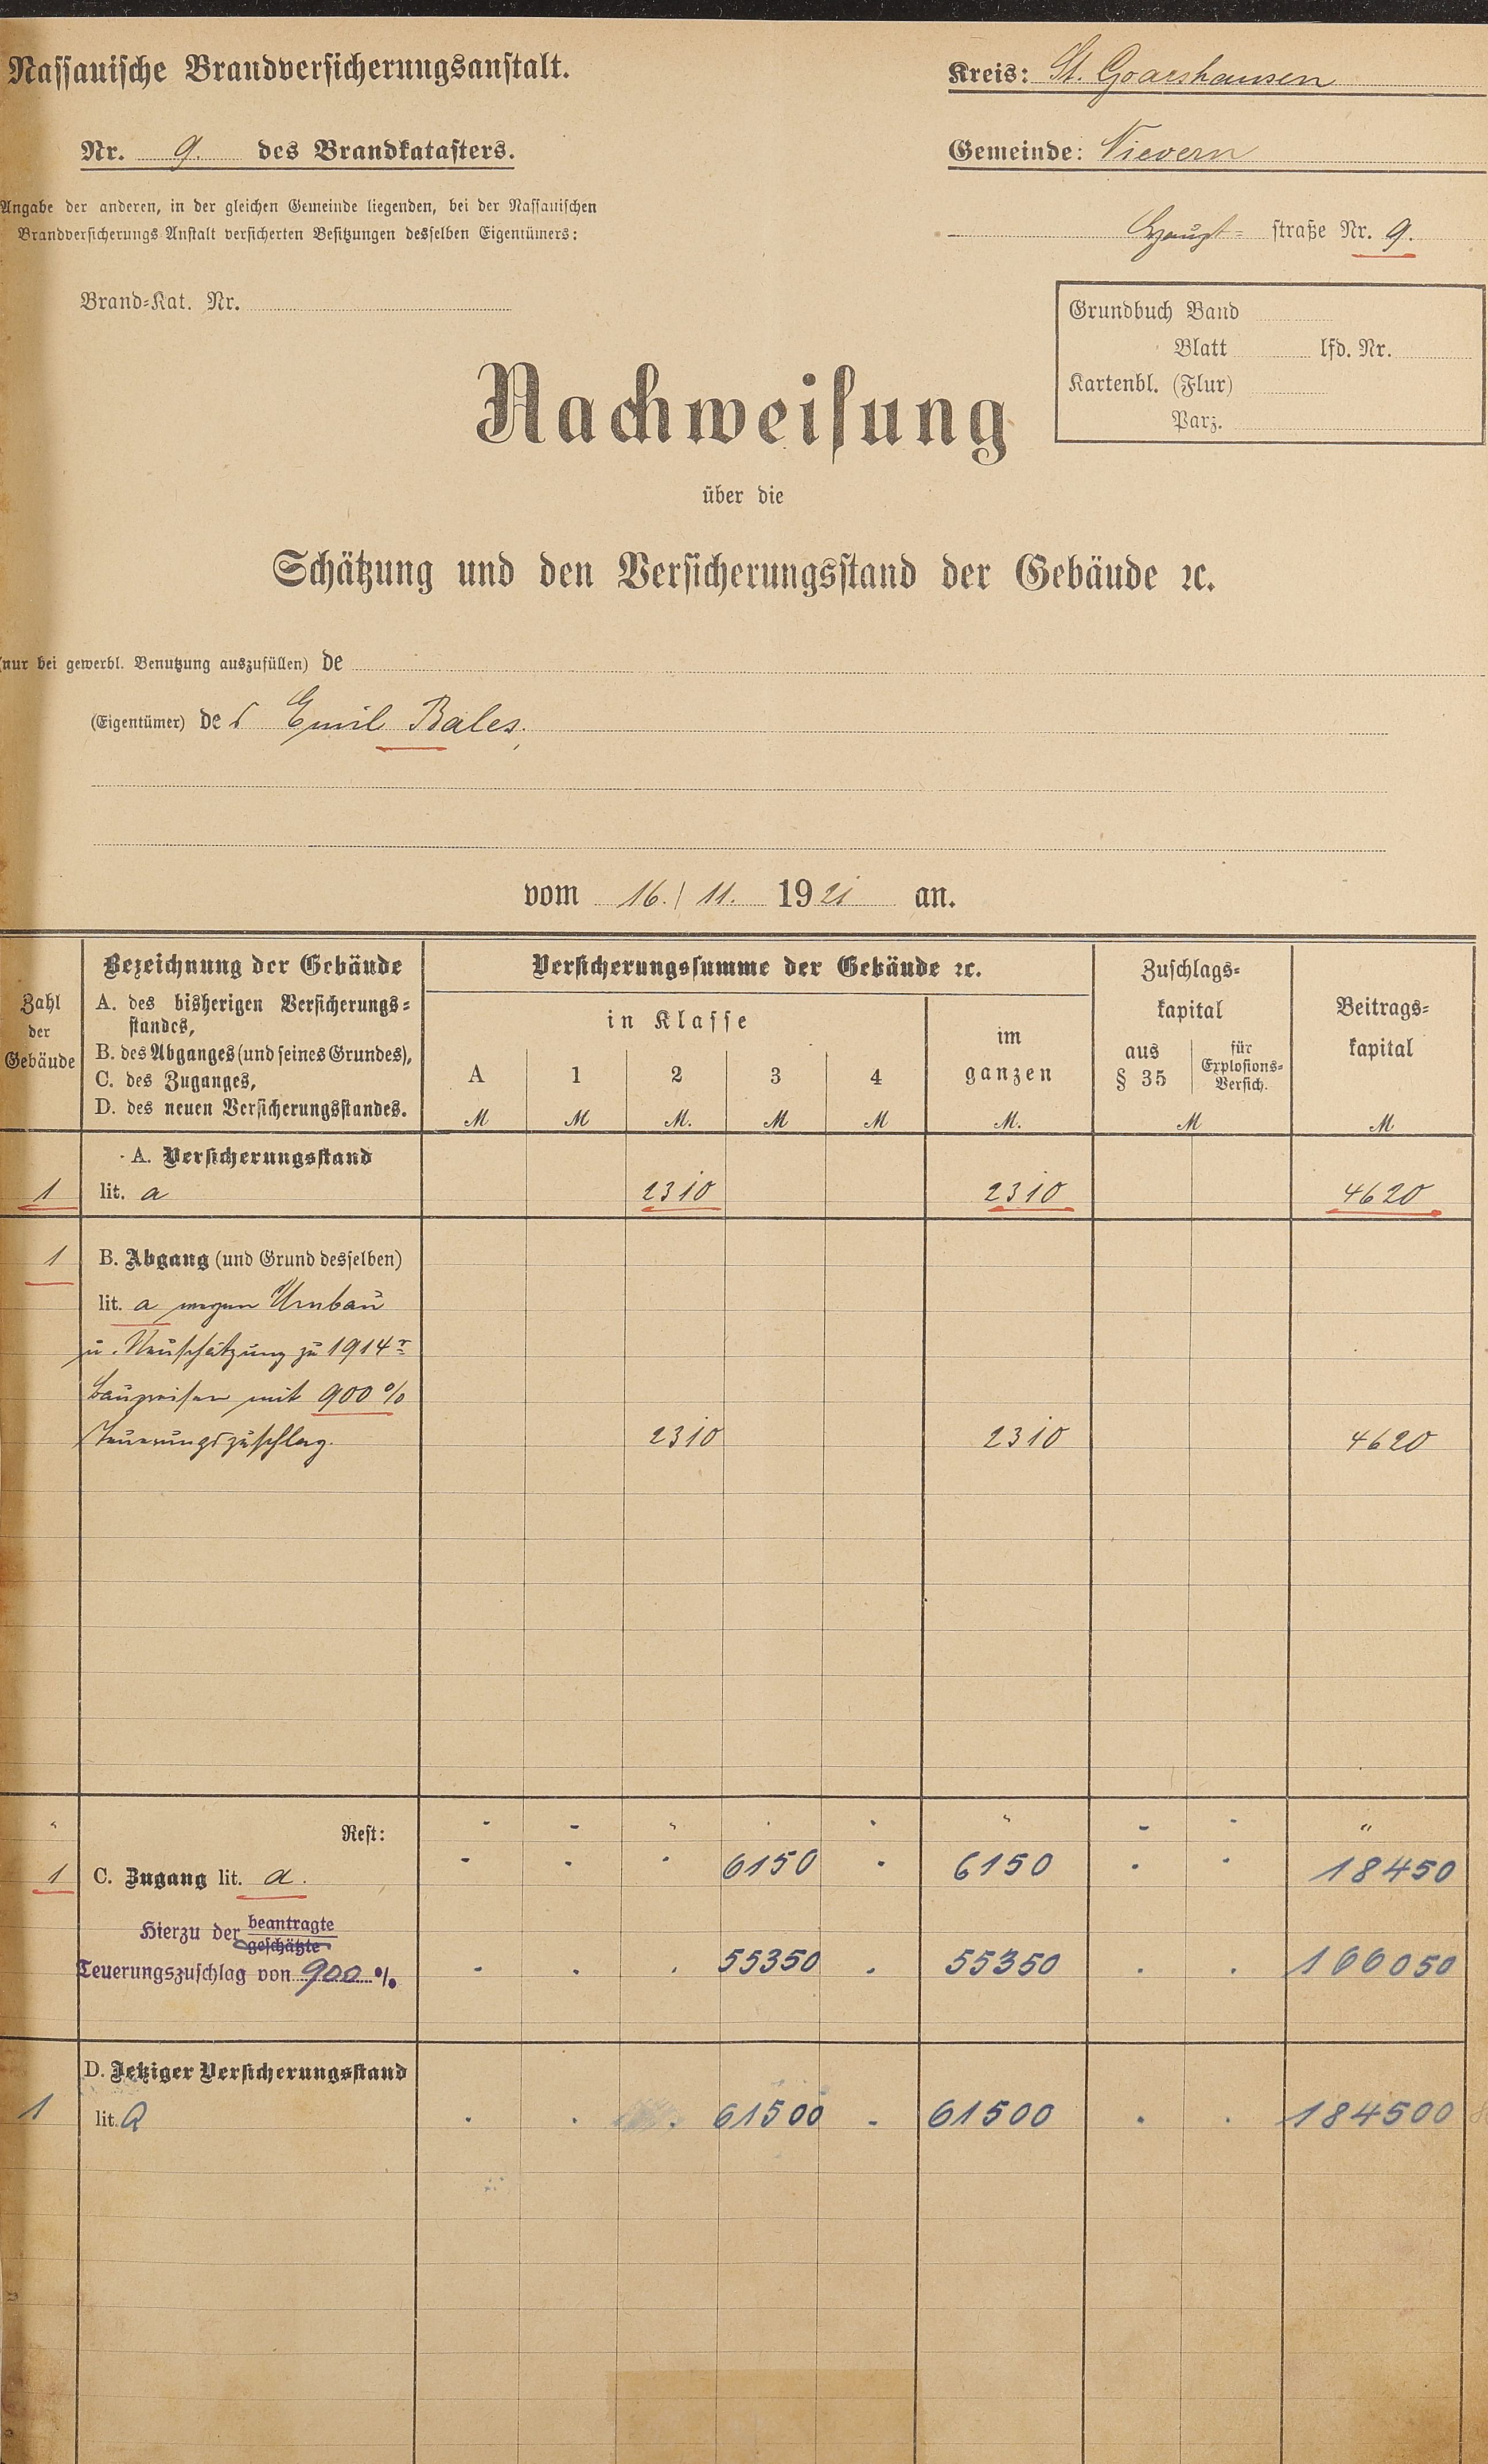 Nassauische Brandversicherungsanstalt.
Kreis: St. Goarshausen
Nr. 9. des Brandkatasters.
Gemeinde: Nievern
Angabe der anderen, in der gleichen Gemeinde liegenden, bei der Nassauischen
Brandversicherungs-Anstalt versicherten Besitzungen desselben Eigentümers:
Haupt= straße Nr. 9.
Brand=Kat. Nr.
Grundbuch Band
Blatt lfd. Nr.
Kartenbl. (Flur)
Parz.
Nachweisung
über die
Schätzung und den Versicherungsstand der Gebäude ꝛc.
(nur bei gewerbl. Benutzung auszufüllen) de
(Eigentümer) des Emil Bales.
vom 16./11. 1921 an.
Zahl der Gebäude
Bezeichnung der Gebäude
A. des bisherigen Versicherungs=
standes,
B. des Abganges (und seines Grundes),
C. des Zuganges,
D. des neuen Versicherungsstandes.
Versicherungssumme der Gebäude ꝛc.
in Klasse
A 1 2 3 4
im ganzen
Zuschlags=
kapital
aus § 35
für Explosions=
Versich.
Beitrags=
kapital
M M M. M M M. M M
A. Versicherungsstand
1 lit. a 2310 2310 4620
1 B. Abgang (und Grund desselben)
lit. a wegen Umbau
u. Neuschätzung zu 1914r
Baupreisen mit 900 %
Teuerungszuschlag. 2310 2310 4620
" Rest: - - " . . " - - "
1 C. Zugang lit. a. - . . 6150 . 6150 . . 18450
Hierzu der beantragte
geschätzte
Teuerungszuschlag von 900 % - . . 55350 . 55350 . . 166050
D. Jetziger Versicherungsstand
1 lit. a . . . 61500 . 61500 . . 184500